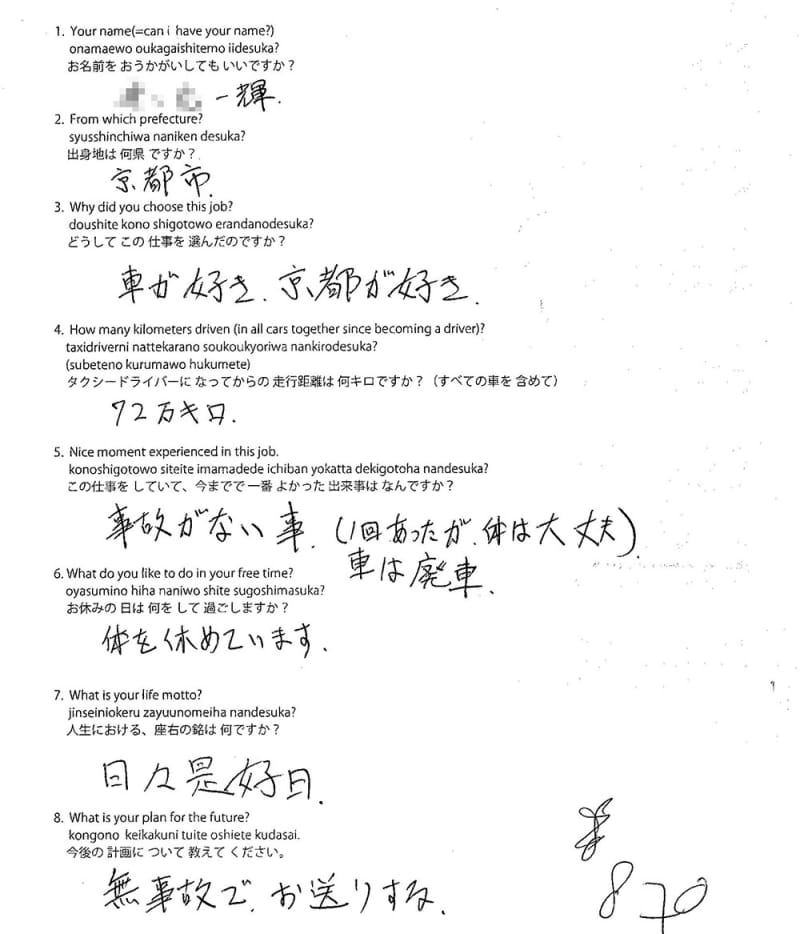 1. Your name(=can i have your name?)
onamaewo oukagaishitemo iidesuka?
お名前を おうかがいしても いいですか？
一輝.
2. From which prefecture?
syusshinchiwa naniken desuka?
出身地は 何県 ですか？
京都市.
3. Why did you choose this job?
doushite kono shigotowo erandanodesuka?
どうして この 仕事を 選んだのですか？
車が好き、京都が好き.
4. How many kilometers driven (in all cars together since becoming a driver)?
taxidriverni nattekarano soukoukyoriwa nankirodesuka?
(subeteno kurumawo hukumete)
タクシードライバーに なってからの 走行距離は 何キロですか？（すべての車を 含めて）
72万キロ.
5. Nice moment experienced in this job.
konoshigotowo siteite imamadede ichiban yokatta dekigotoha nandesuka?
この仕事を していて、今までで 一番 よかった 出来事は なんですか？
事故がない事. (1回あったが、体は大丈夫)
車は廃車、
6. What do you like to do in your free time?
oyasumino hiha naniwo shite sugoshimasuka?
お休みの 日は 何を して 過ごしますか？
体を休めています.
7. What is your life motto?
jinseiniokeru zayuunomeiha nandesuka?
人生における、座右の銘は 何ですか？
日々是好日.
8. What is your plan for the future?
kongono keikakuni tuite oshiete kudasai.
今後の 計画に ついて 教えて ください。
無事故で、お送りする.
870